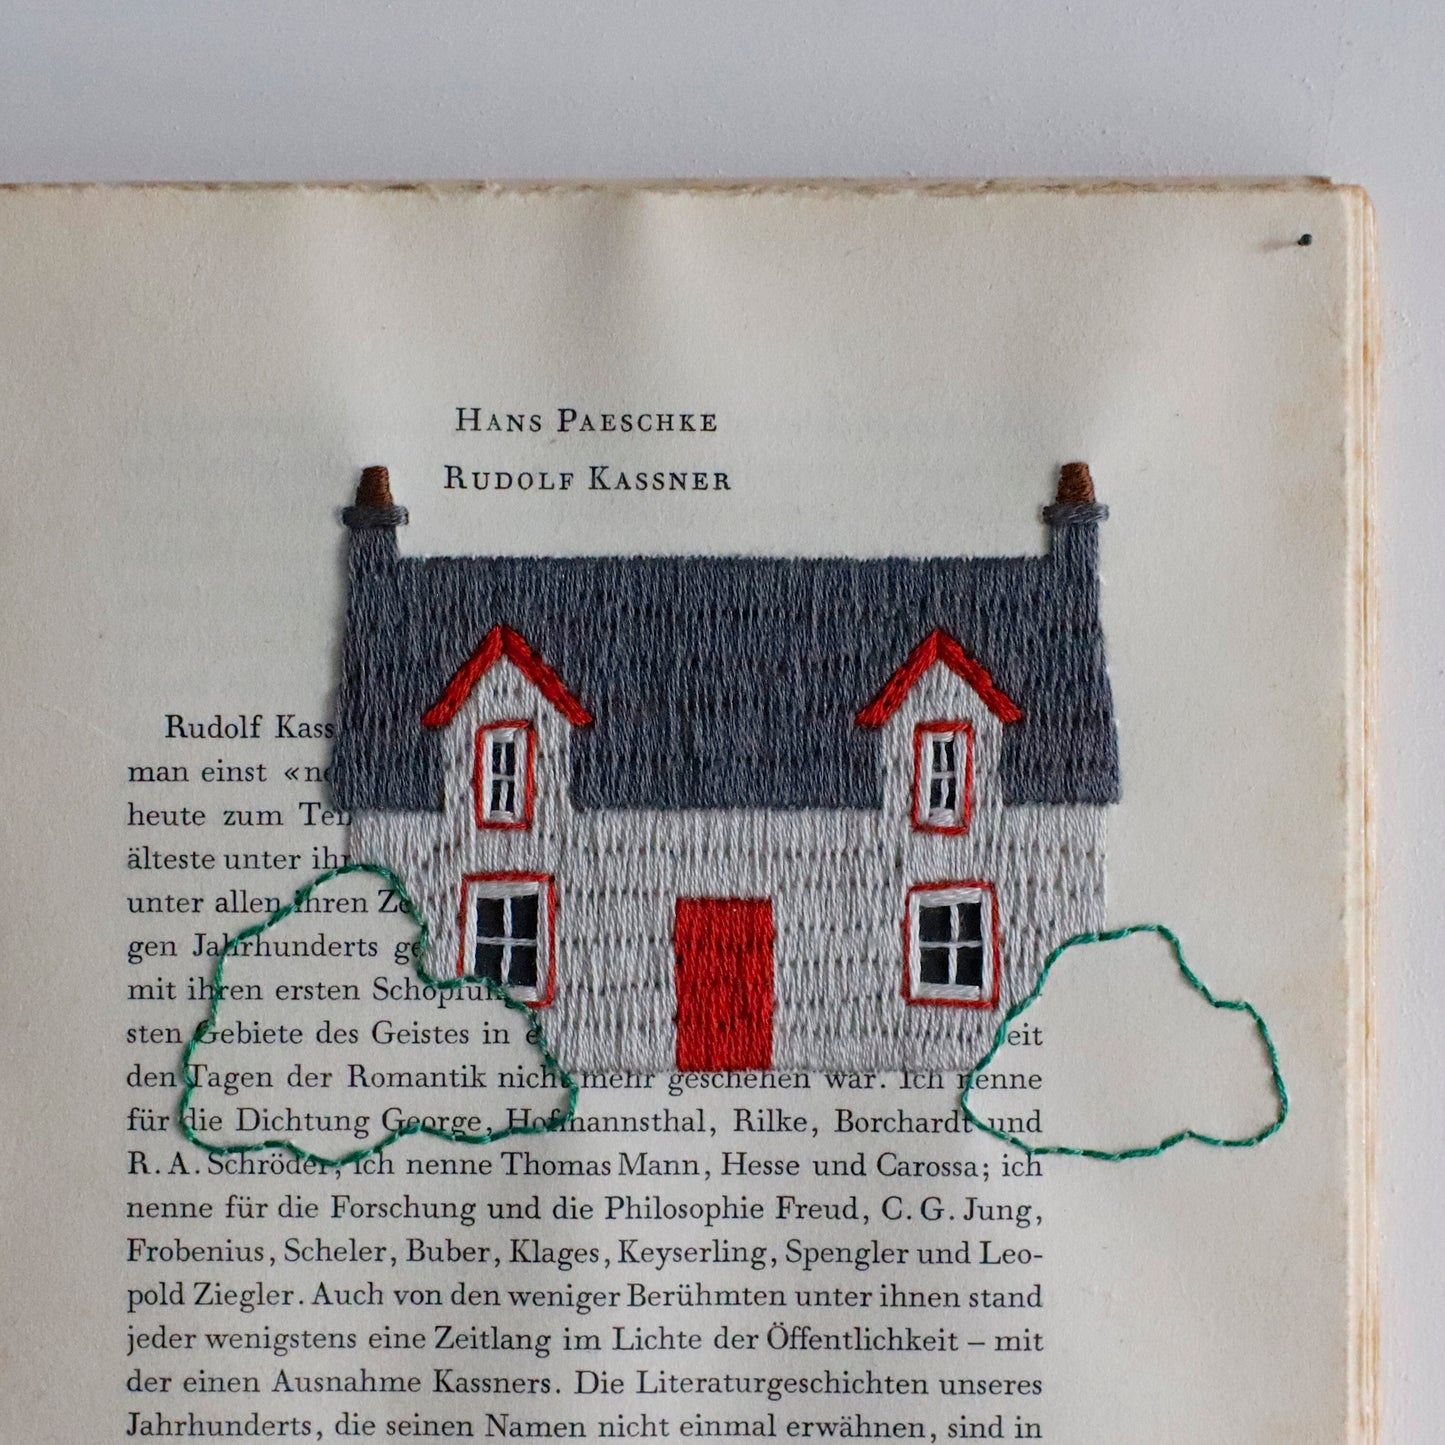 HANS PAESCHKE
RUDOLF KASSNER
Rudolf Kass
man einst «ne
heute zum Ten
älteste unter ihr
unter allen ihren Ze
gen Jahrhunderts ge
mit ihren ersten Schöpfung
sten Gebiete des Geistes in e eit
den Tagen der Romantik nicht mehr geschehen war. Ich nenne
für die Dichtung George, Hofmannsthal, Rilke, Borchardt und
R. A. Schröder, ich nenne Thomas Mann, Hesse und Carossa; ich
nenne für die Forschung und die Philosophie Freud, C. G. Jung,
Frobenius, Scheler, Buber, Klages, Keyserling, Spengler und Leo-
pold Ziegler. Auch von den weniger Berühmten unter ihnen stand
jeder wenigstens eine Zeitlang im Lichte der Öffentlichkeit – mit
der einen Ausnahme Kassners. Die Literaturgeschichten unseres
Jahrhunderts, die seinen Namen nicht einmal erwähnen, sind in